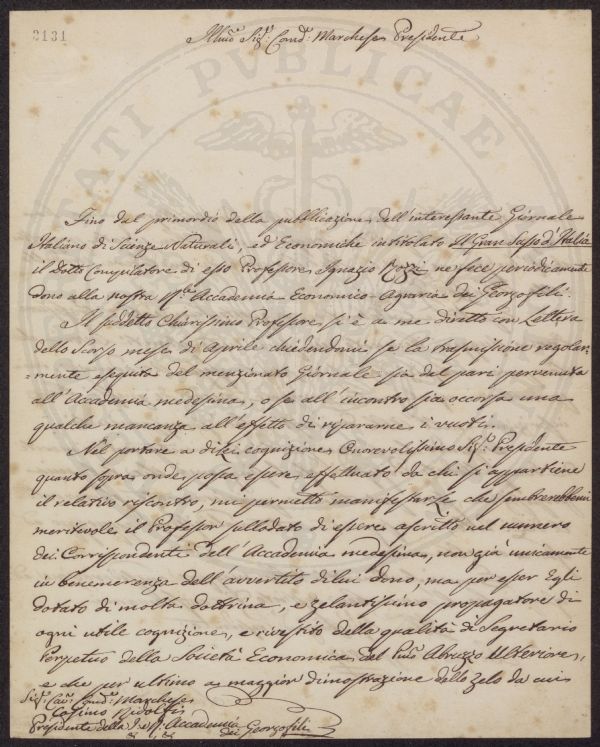 2131
Illmo Sigr. Comd. Marchese Presidente
PUBLICAE
Fino dal primordio della pubblicazione dell'interessante Giornale
Italiano di Scienze Naturali, ed Economiche intitolato Il Gran Sasso d'Italia
il dotto Compilatore di esso Professore Ignazio Rozzi ne fece periodicamente
dono alla nostra Rle. Accademia Economico-Agraria dei Georgofili.
Il suddetto Chiarissimo Professore si è a me diretto con Lettera
dello Scorso mese di Aprile chiedendomi se la trasmissione regolar-
=mente eseguita del menzionato Giornale sia del pari pervenuta
all'Accademia medesima, o se all'incontro sia occorsa una
qualche mancanza all'effetto di ripararne i vuoti.
Nel portare a di lei cognizione Onorevolissimo Sigr. Presidente
quanto sopra onde possa essere effettuato da chi si appartiene
il relativo riscontro, mi permetto manifestarle che sembrerebbemi
meritevole il Professor sullodato di essere ascritto nel numero
dei Corrispondenti dell'Accademia medesima, non già unicamente
in benemerenza dell'avvertito di lui dono, ma per esser Egli
dotato di molta dottrina, e zelantissimo propagatore di
ogni utile cognizione, e rivestito della qualità di Segretario
Perpetuo della Società Economica del Primo Abruzzo Ulteriore,
e che per ultimo a maggior dimostrazione dello zelo da cui
Sigr. Cav. Comd. Marchese
Cosimo Ridolfi
Presidente della I. e R. Accademia
dei Georgofili